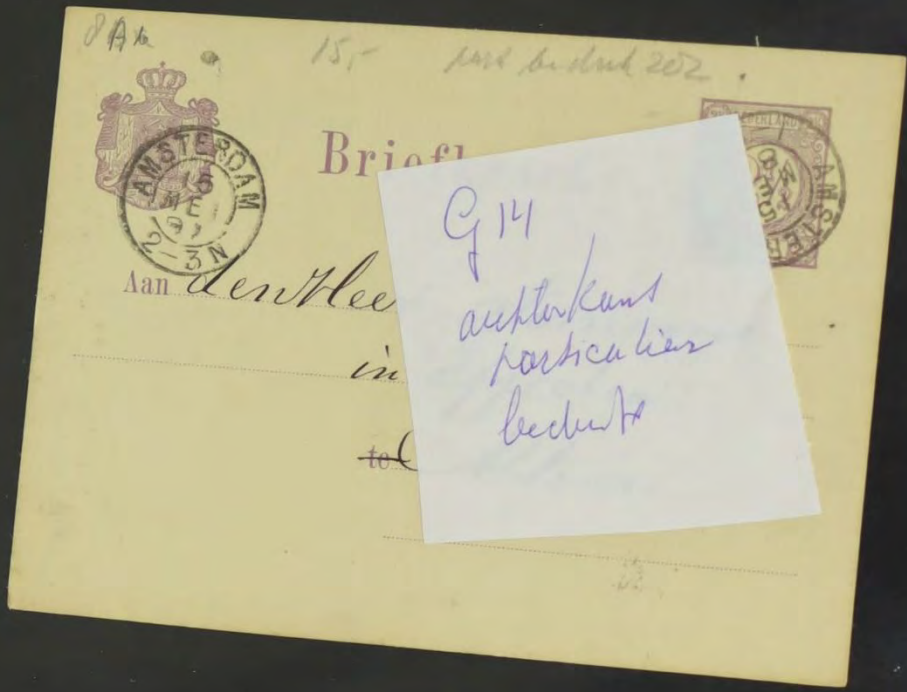 15,-
202
NEDERLAND
Brief
AMSTERDAM
15
ME
2-3N
AMSTER
Aan den Hee
in
te
G 14
achterkant
particulier
bedrukt